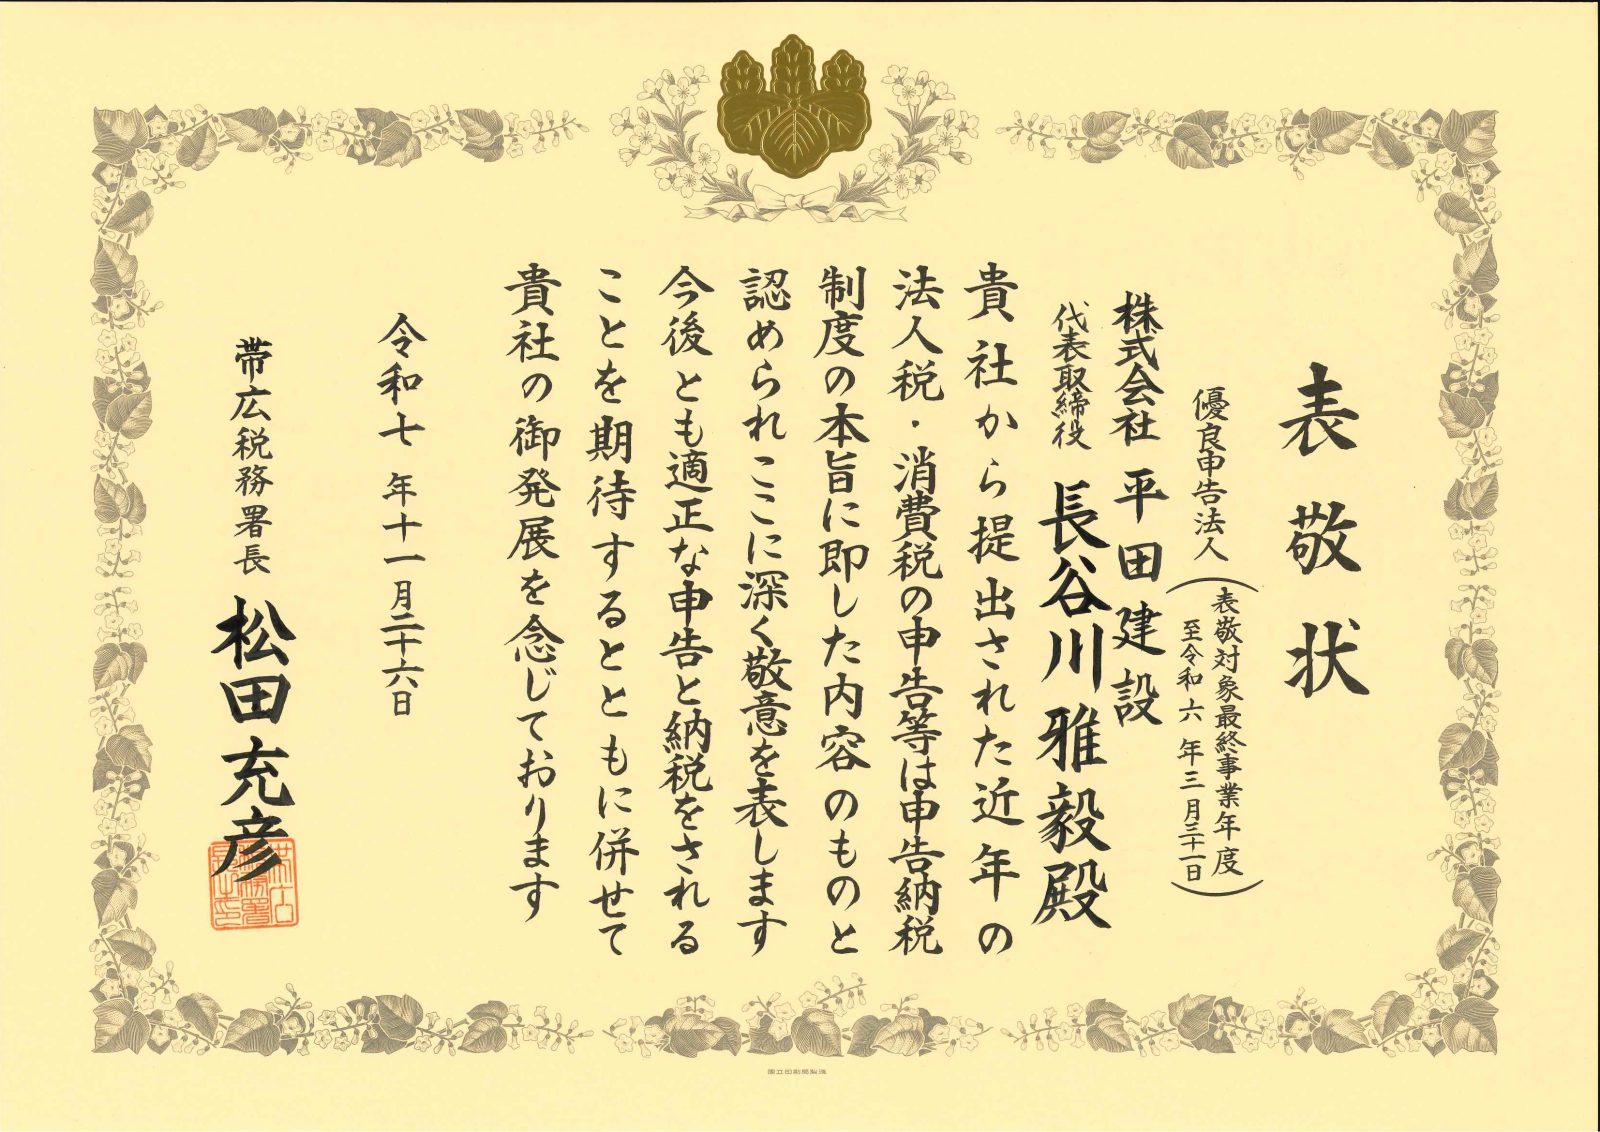 表敬状
優良申告法人
(表敬対象最終事業年度
至令和六年三月三十一日)
株式会社 平田建設
代表取締役 長谷川雅毅殿
貴社から提出された近年の
法人税・消費税の申告等は申告納税
制度の本旨に即した内容のものと
認められここに深く敬意を表します
今後とも適正な申告と納税をされる
ことを期待するとともに併せて
貴社の御発展を念じております
令和七年十一月二十六日
帯広税務署長 松田充彦
帯広税務署長之印
国立印刷局製造